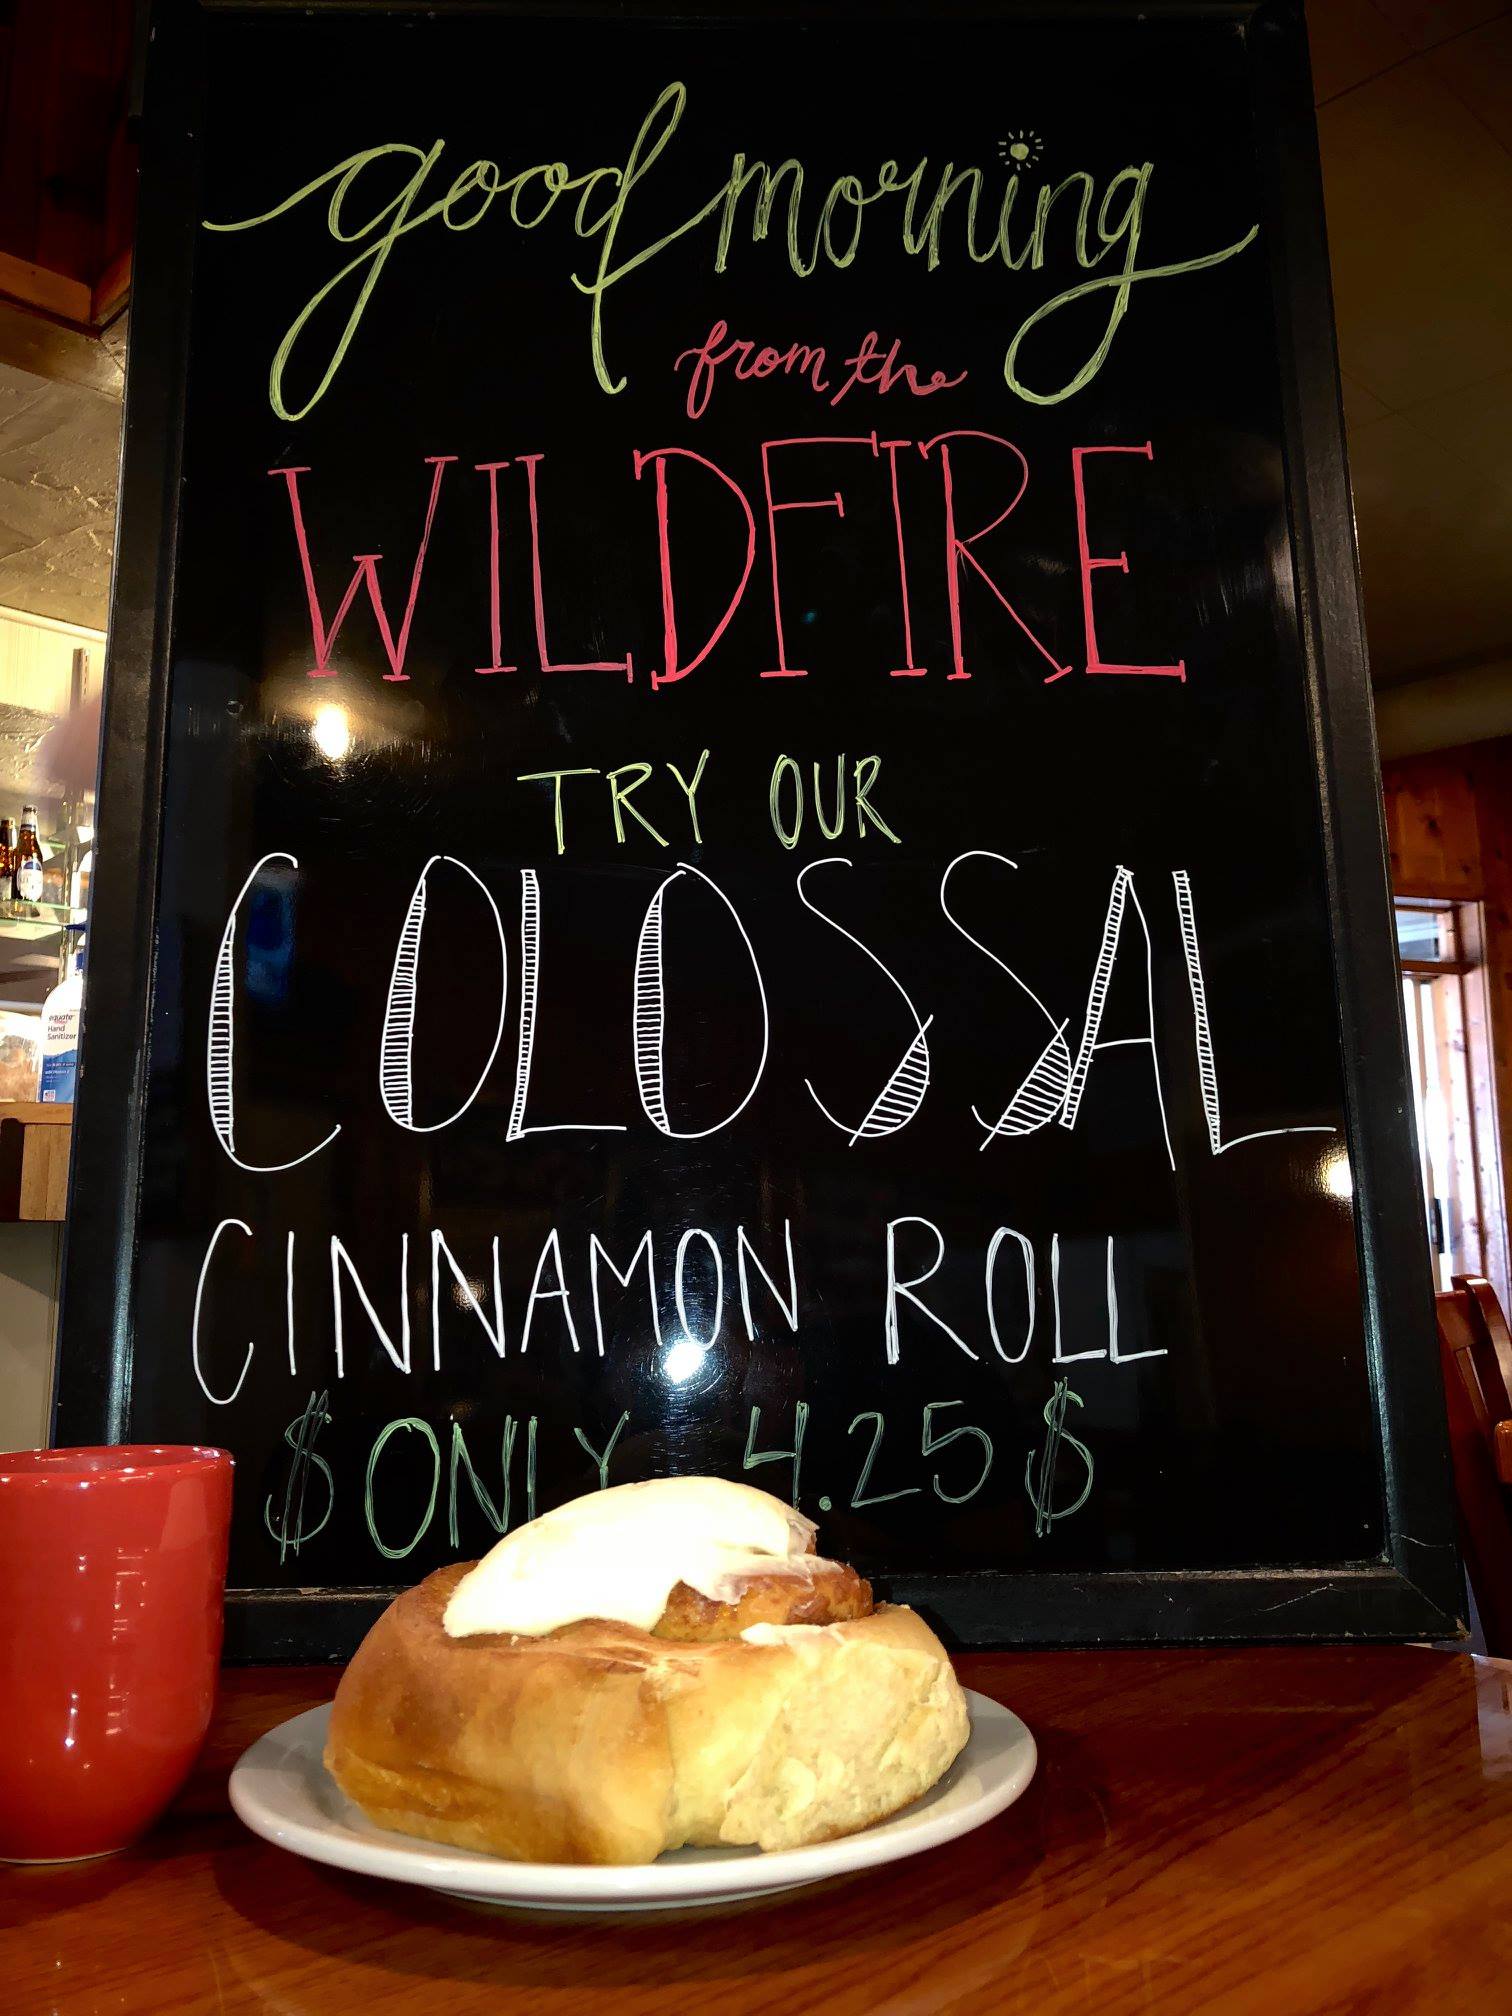 good morning
from the
WILDFIRE
TRY OUR
COLOSSAL
CINNAMON ROLL
$ ONLY 4.25 $
equate
Hand
Sanitizer